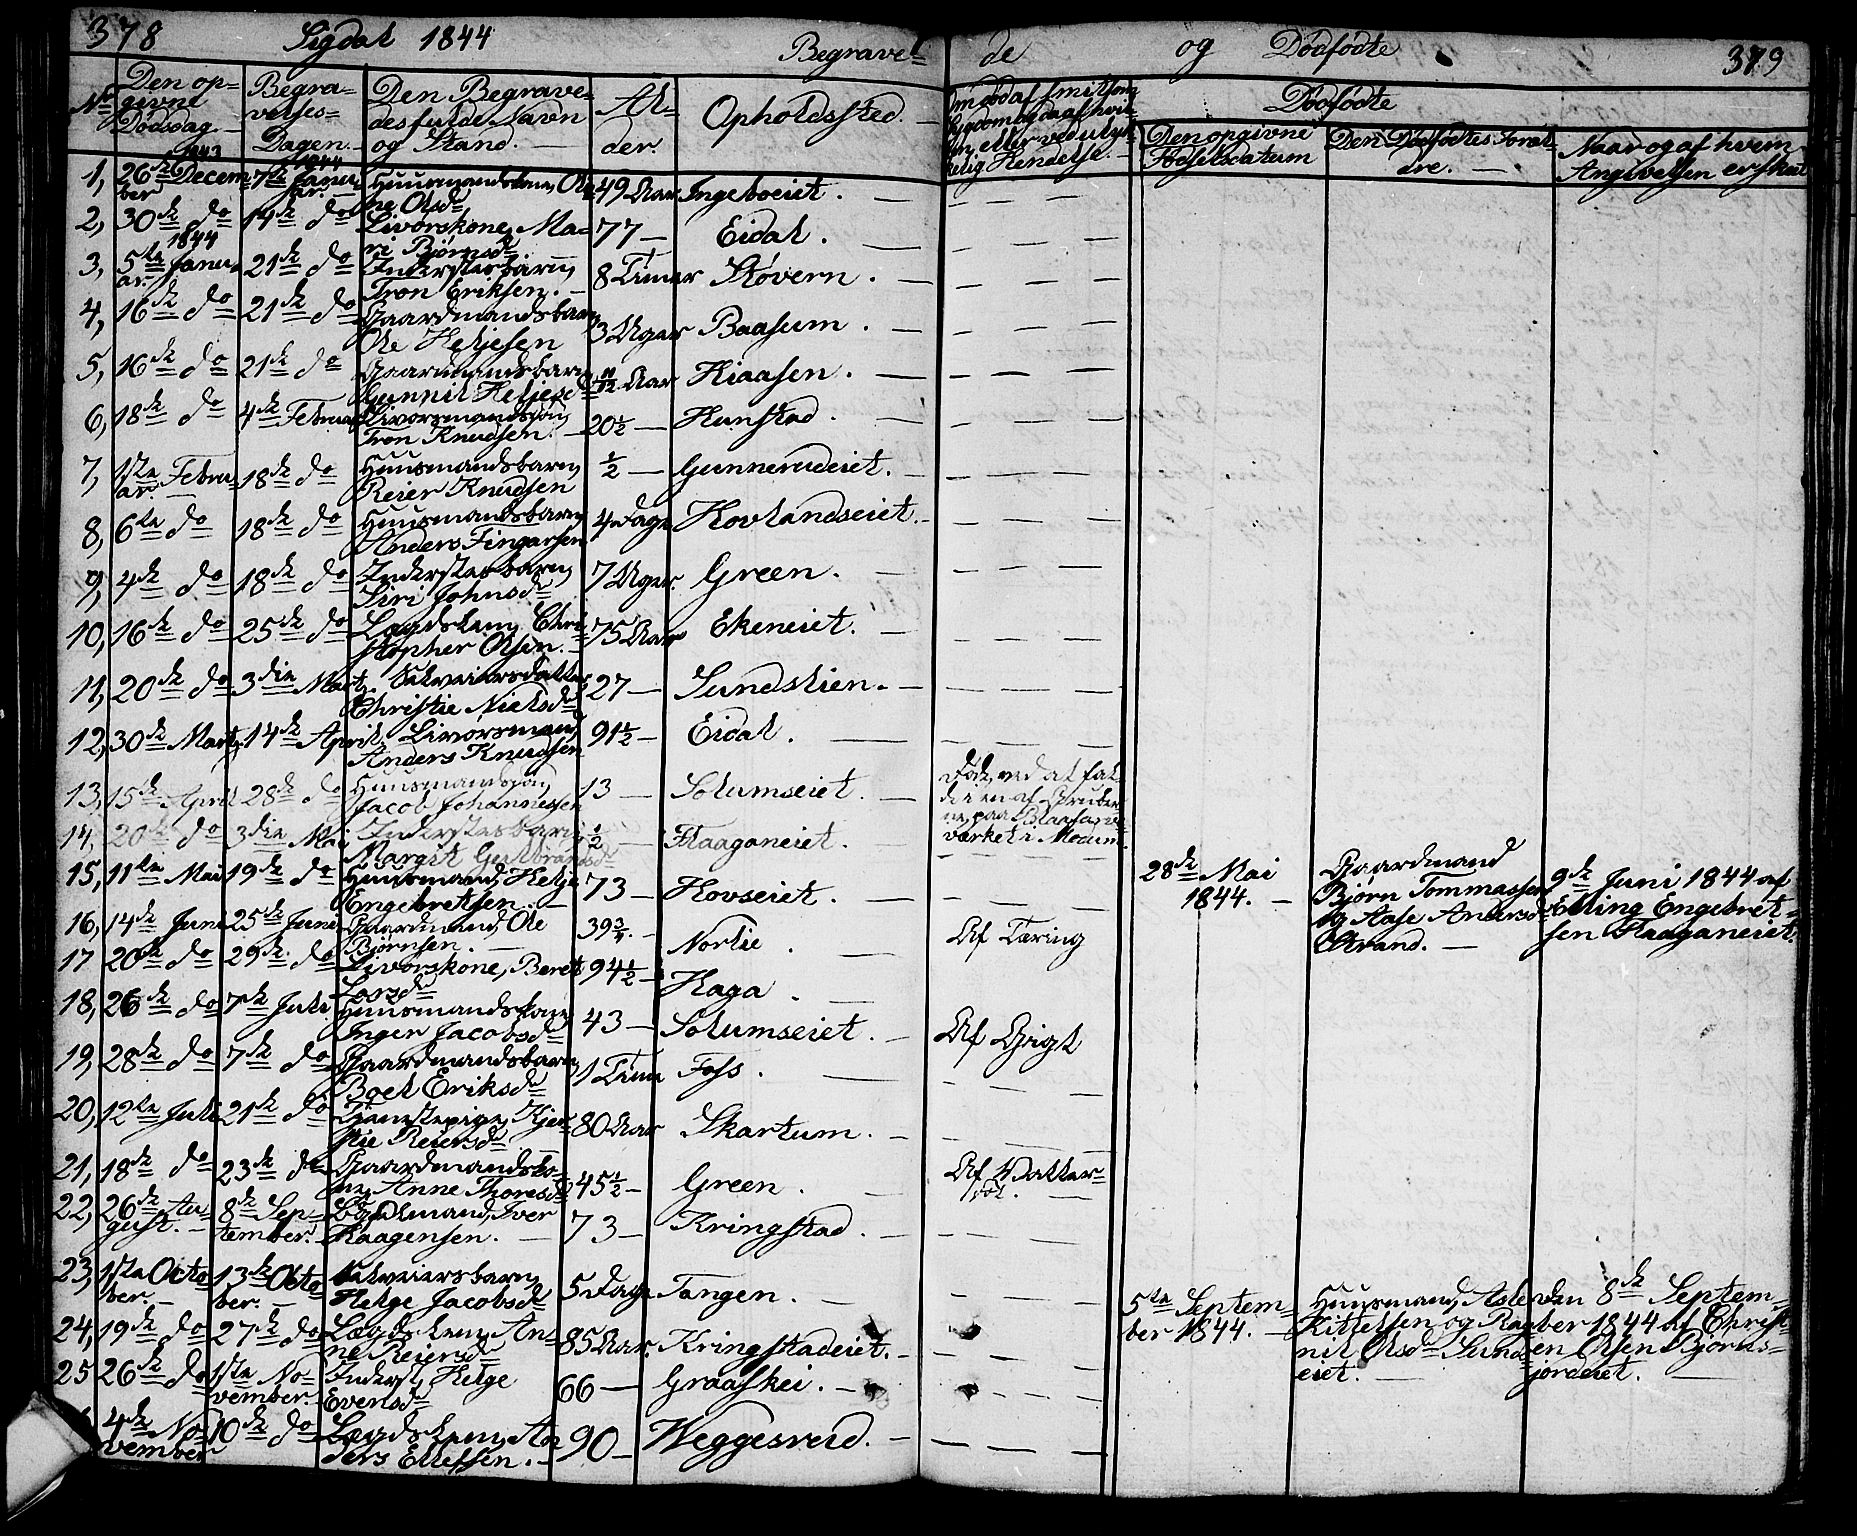 378 Sigdal 1844 Begrave-
de og Dödfödte 379
No Den op-givne Dödsdag. Begra-velses-Dagen. Den Begrave-des fulde Navn og Stand. Al-der. Opholdssted.
Om död af smitsom Sygdom og da af hvilken, eller ved ulykkelig Hendelse.
Dödfödte
Den opgivne Födselsdatum Den Dödfödtes Foræl-dre. Naar og af hvem Angivelsen er skeet
1, 26de Decem-ber 1843 7de Janu-ar. 1844 Huusmandskone, Ole-ne Olsd. 49 Aar Ingeboeiet.
2, 30de do 14de do Livörskone, Ma-ri Björnsd. 77 Eidal.
3, 5te Janu-ar. 1844 21de do Inderstesbarn, Tron Eriksen. 8 Timer Stövern.
4, 16de do 21de do Gaardmandsbarn Ole Heljesen 3 Uger Baasum.
5, 16de do 21de do Gaardmandsbarn Gunnil Heljesd. 11/12 Aar Kiaasen.
6, 18de do 4de Februar Livörsmandssön, Tron Knudsen. 20½ Hunstad.
7, 1ste Febru-ar. 18de do Huusmandsbarn, Reier Knudsen ½ Gunnerudeiet.
8, 6te do 18de do Huusmandsbarn Anders Fingarsen 4 Dage Hovlandseiet.
9, 4de do 18de do Inderstesbarn, Siri Johnsd. 7 Uger. Green.
10, 16de do 25de do Lægdslem, Chri-stopher Olsen. 75 Aar Ekeneiet.
11, 20de do 3die Marts. Selveiersdatter Christie Nielsd. 27 Sundslien.
12, 30de Marts, 14de April, Livörsmand, Anders Knudsen 91½ Eidal.
13, 15de April 28de do Huusmandssön, Jacob Johannessen 13 Solumseiet. Döde, ved at fal-de i en af Gruber-ne, paa Blaafarve-værket i Modum.
14, 20de do 3die Mai, Inderstesbarn Margit Guldbrandsd. ½ Haaganeiet.
15, 11te Mai 19de do Huusmand, Helje Engebretsen. 73 Hovseiet.
28de Mai 1844. Gaardmand Björn Tommassen og Aase Andersd. Strand. 9de Juni 1844 af Elling Engebret-sen Haaganeiet.
16, 14de Juni 25de Juni, Gaardmand, Ole Björnsen. 39¾. Norlie. Af Tæring
17 20de do 29de do Livörskone, Beret Larsd. 94½ Haga.
18, 26de do 7de Juli. Huusmandskone Inger Jacobsd. 43 Solumseiet. Af Gigt
19, 28de do 7de do Gaardmandsbarn, Boel Eriksd. 1 Time Foss.
20, 12te Juli 21de do Tjenstepige, Kjer-stie Reiersd. 80 Aar Skartum.
21, 18de do 23de do Gaardmandsko-ne, Anne Thoresd. 45½ Green. Af Watter-sot.
22, 26de Au-gust. 8de Sep-tember. Lægdsmand, Iver Haagensen. 73 Kringstad.
23, 1ste Octo-ber. 13de Octo-ber. Selveiersbarn, Helge Jacobsd. 5 Dage Tangen.
5te Septem-ber 1844. Huusmand, Asle Kittelsen og Ragnil Olsd. Sunds-eiet. den 8de Septem-ber 1844 af Christ-en Olsen Björns-jordeiet.
24, 19de do 27de do Lægdslem, An-ne Reiersd. 85 Aar. Kringstadeiet.
25 26de do 1ste No-vember. Inderst, Helge Evensd. 66 Graaskei.
4de No-vember 10de do Lægdslem, An-ders Ellefsen. 90 Weggesrud.